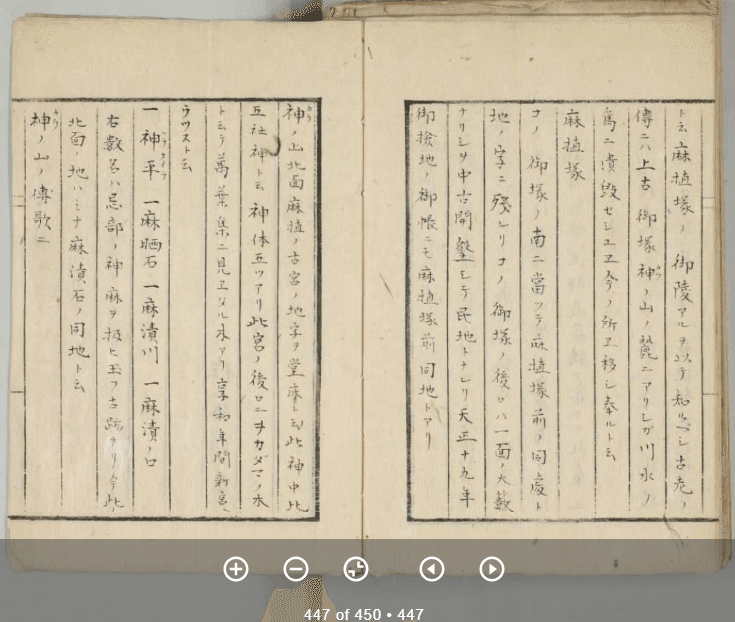 ト云麻植塚ノ御陵アルヲ以テ知ルベシ古老ノ
傳ニハ上古御塚神ノ山ノ麓ニアリシガ川水ノ
為ニ潰毀セシユヱ今ノ所ヱ移シ奉ルト云
麻植塚
コノ御塚ノ南ニ當ツテ麻植塚前ノ同處ト
地ノ字ニ殘レリコノ御塚ノ後ロハ一面ノ大藪
ナリシヲ中古開墾シテ民地トナレリ天正十九年
御撿地ノ御帳ニモ麻植塚前同地トアリ
神ノ山北面麻植ノ古宮ノ地字ヲ堂床ト云此神中比
五社神ト云神体五ツアリ此宮ノ後ロニヲカダマノ木
ト云テ萬葉集ニ見ヱタル木アリ享和年間新宮ヘ
ウツスト云
一神平 一麻晒石 一麻漬川 一麻漬ノ口
右數名ハ忌部ノ神麻ヲ扱ヒ玉フ古跡ナリ今此ノ
北面ノ地ハミナ麻漬石ノ同地ト云
神ノ山ノ傳歌ニ
447 of 450 • 447